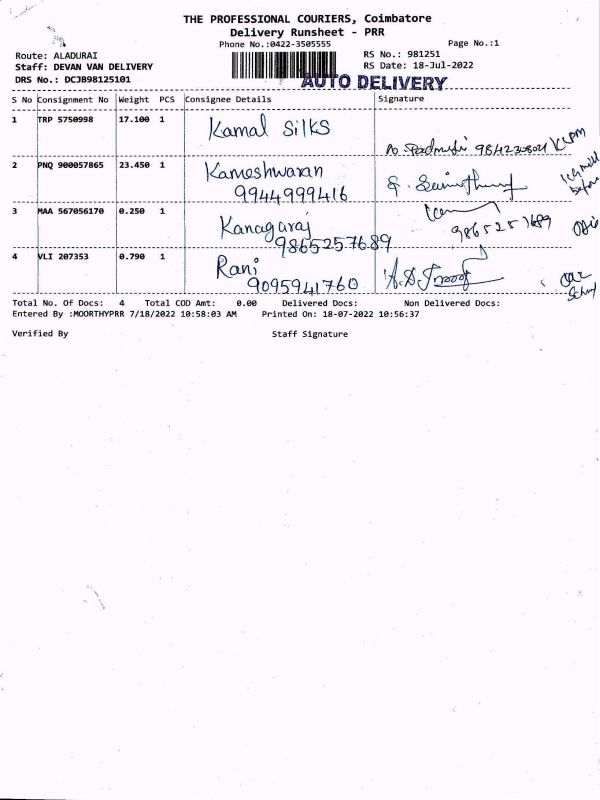 THE PROFESSIONAL COURIERS, Coimbatore
Delivery Runsheet - PRR
Phone No.:0422-3505555
Page No.:1
Route: ALADURAI
RS No.: 981251
Staff: DEVAN VAN DELIVERY
RS Date: 18-Jul-2022
DRS No.: DCJB98125101
AUTO DELIVERY
S No Consignment No Weight PCS Consignee Details Signature
1 TRP 5750998 17.100 1 Kamal Silks
2 PNQ 900057865 23.450 1 Kameshwaran
9944999416
3 MAA 567056170 0.250 1 Kanagaraj
9865257689
9865257689
4 VLI 207353 0.790 1 Rani
9095941760
Total No. Of Docs: 4 Total COD Amt: 0.00 Delivered Docs: Non Delivered Docs:
Entered By :MOORTHYPRR 7/18/2022 10:58:03 AM Printed On: 18-07-2022 10:56:37
Verified By Staff Signature